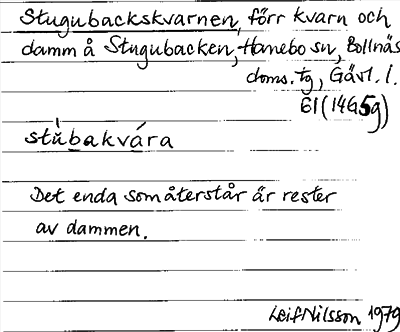 Stugubackskvarnen, förr kvarn och
damm å Stugubacken, Hanebo sn, Bollnäs
doms. tg, Gävl. l.
61(14G5g)
stùbakvára
Det enda som återstår är rester
av dammen.
Leif Nilsson 1979